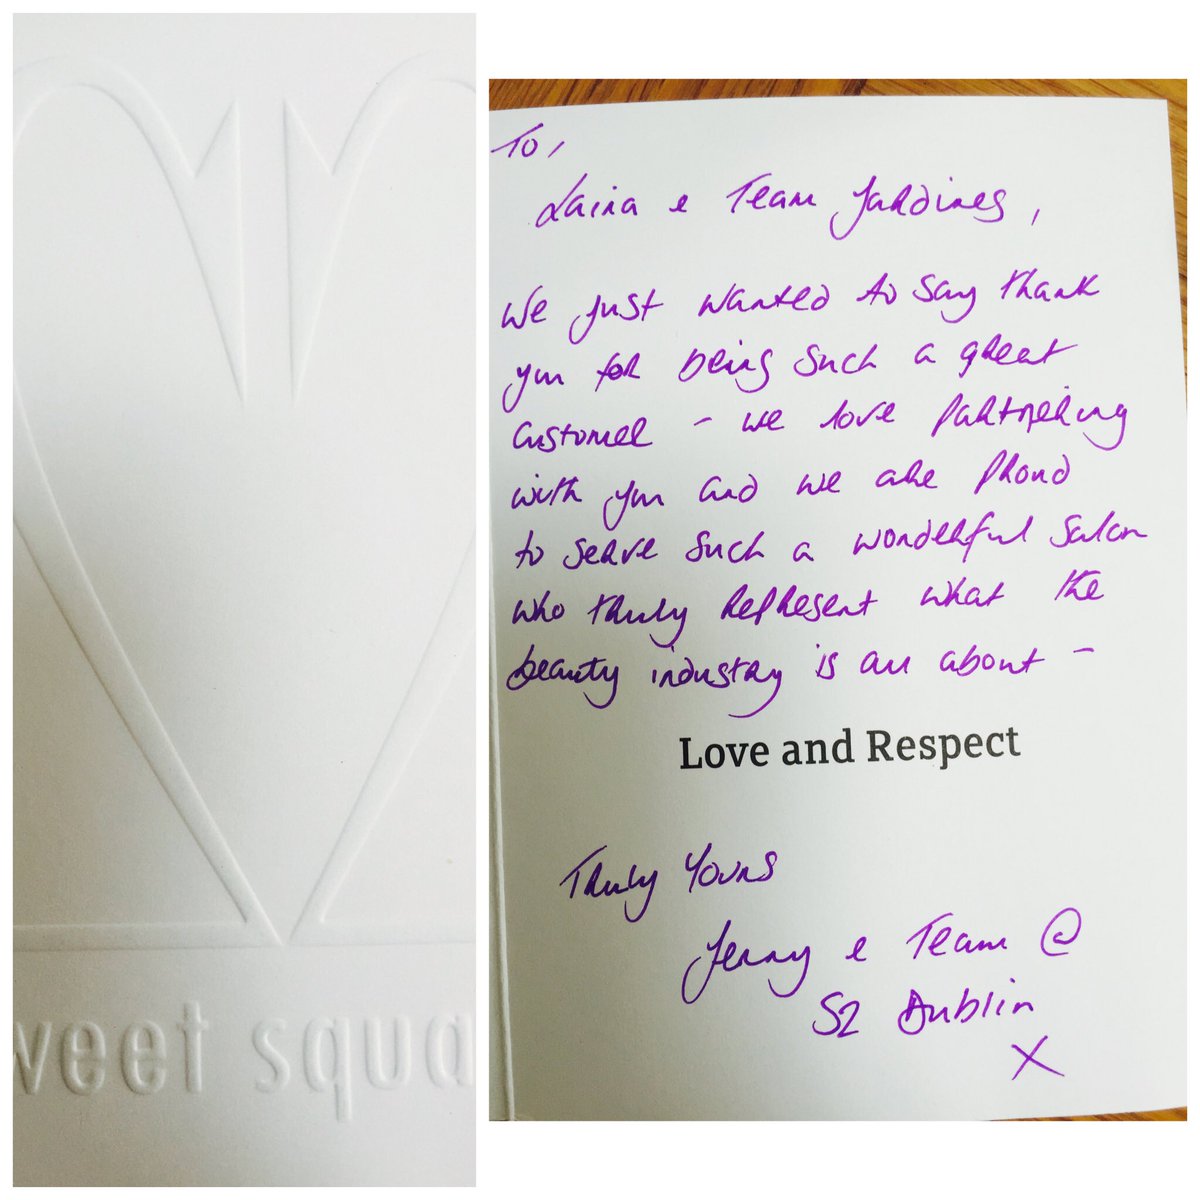 weet squa
To,
Laina & Team Jardines,
We just wanted to say thank
you for being such a great
customer - we love partnering
with you and we are proud
to serve such a wonderful salon
who truly represent what the
beauty industry is all about -
Love and Respect
Truly Yours
Jenny & Team @
S2 Dublin
X